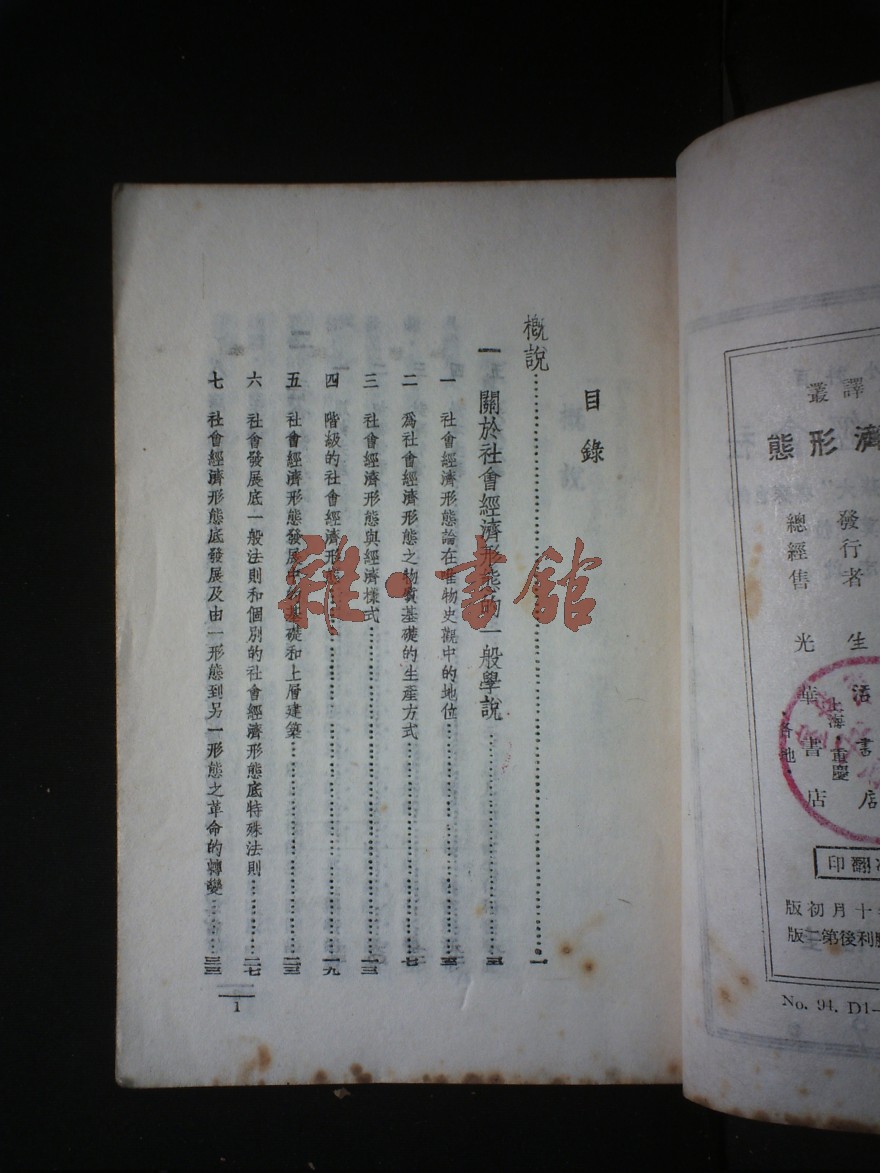 譯叢
濟形態
發行者 生活書店
上海·重慶
總經售 光華書店
·各地·
翻印
十月初版
利後第二版
No. 94. D1—
目錄
概說……一
一 關於社會經濟形態的一般學說……
一 社會經濟形態論在唯物史觀中的地位……
二 爲社會經濟形態之物質基礎的生產方式……七
三 社會經濟形態與經濟樣式……一三
四 階級的社會經濟形態……一九
五 社會經濟形態發展中的基礎和上層建築……二三
六 社會發展底一般法則和個別的社會經濟形態底特殊法則……二七
七 社會經濟形態底發展及由一形態到另一形態之革命的轉變……三三
1
雜·書館